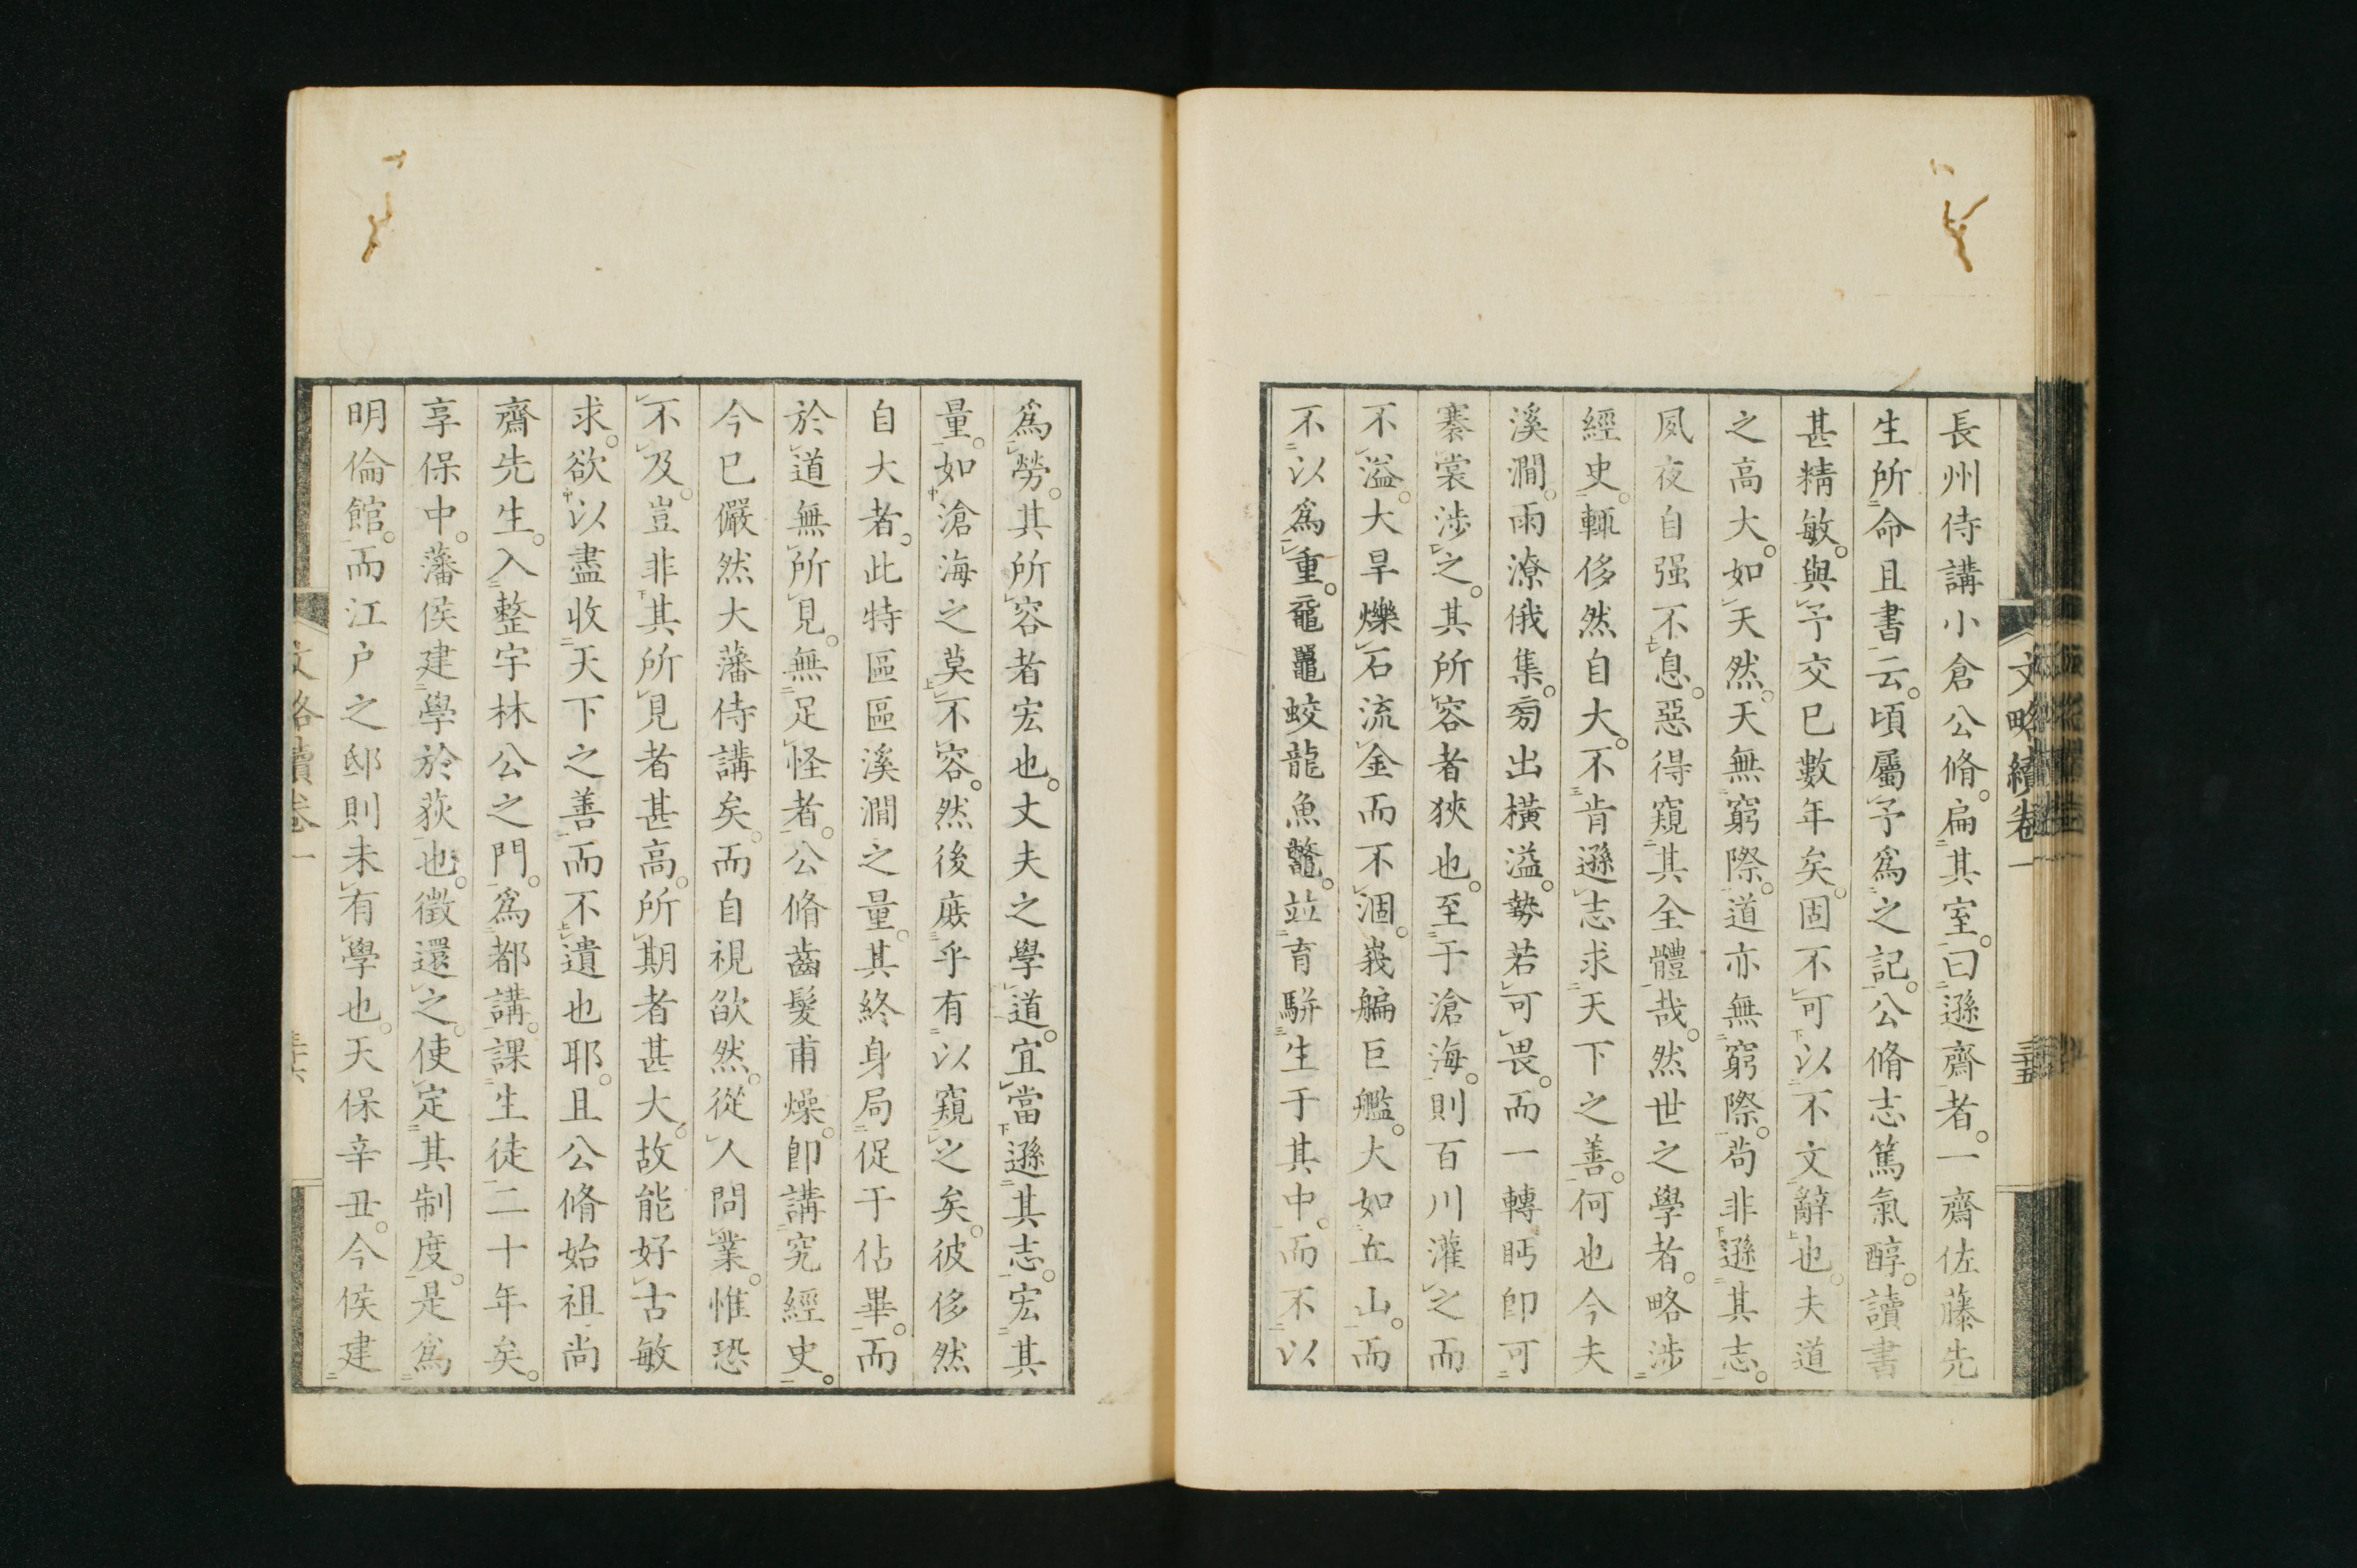 文略續卷一
三十五
長州侍講小倉公脩。扁其室。曰遜齋者。一齋佐藤先
生所命且書云。頃屬予爲之記。公脩志篤氣醇。讀書
甚精敏。與予交已數年矣。固不可以不文辭也。夫道
之高大。如天然。天無窮際。道亦無窮際。苟非遜其志。
夙夜自强不息。惡得窺其全體哉。然世之學者。略涉
經史。輒侈然自大。不肯遜志求天下之善。何也今夫
溪澗。雨潦俄集。匇出橫溢。勢若可畏。而一轉眄卽可
褰裳涉之。其所容者狹也。至于滄海。則百川灌之而
不溢。大旱爍石流金而不涸。峩艑巨艦。大如丘山。而
不以爲重。黿鼉蛟龍魚鼈。竝育駢生于其中。而不以
爲勞。其所容者宏也。丈夫之學道。宜當遜其志。宏其
量。如滄海之莫不容。然後庶乎有以窺之矣。彼侈然
自大者。此特區區溪澗之量。其終身局促于佔畢。而
於道無所見。無足怪者。公脩齒髮甫燥。卽講究經史。
今已儼然大藩侍講矣。而自視欿然。從人問業。惟恐
不及。豈非其所見者甚高。所期者甚大。故能好古敏
求。欲以盡收天下之善。而不遺也耶。且公脩始祖尚
齋先生。入整宇林公之門。爲都講。課生徒二十年矣。
享保中。藩侯建學於荻也。徵還之。使定其制度。是爲
明倫館。而江户之邸則未有學也。天保辛丑。今侯建
文略續卷一
三十六